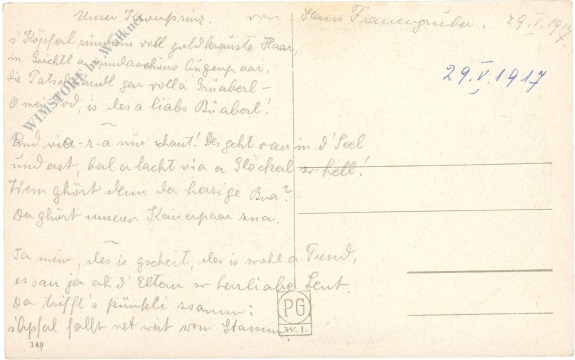 Unser Kronprinz. von Hans Frauengruber. 29.V.1917
s' Köpferl rundum voll goldkrauste Haar,
in Gsichtl a wundaschöns Augenpaar,
die Tatscherl gar volla Grüaberl –
O mei God, is des a liabs Büaberl!
29.V.1917
Und wia-r-a nur schaut! Des geht oan in d' Seel
und erst, bal er lacht via a Glöckerl so hell!
Wem ghört denn da herzige Bua?
Da ghört unseren Kaiserpaar zua.
Ja mein, des is gscheit, des is wohl a Freud,
es san ja ah d' Eltern so herrliche Leut.
Da trifft's pünktli zsamm:
s' Apfal fallt net weit vom Stamm.
PG
W.I.
149
WIMSTORE by Walknet